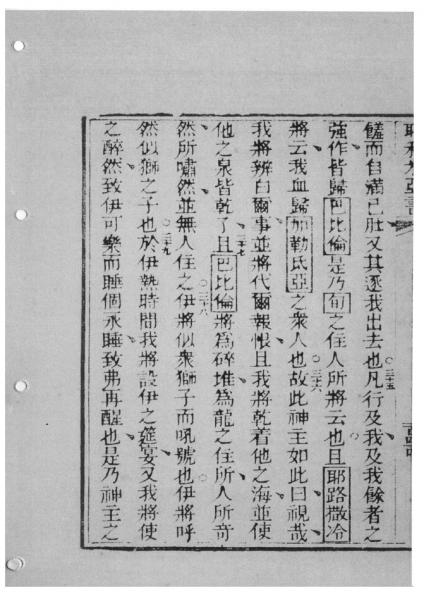 饈而自滿己肚又其逐我出去也三十五凡行及我及我餘者之
強作皆歸巴比倫是乃旬之住人所將云也且耶路撒冷
將云我血歸加勒氏亞之衆人也三十六故此神主如此曰視哉
我將辨白爾事並將代爾報恨且我將乾着他之海並使
他之泉皆乾了三十七且巴比倫將爲碎堆爲龍之住所人所奇
然所嘯然並無人住之三十八伊將似衆獅子而吼號也伊將呼
然似獅之子也三十九於伊熱時間我將設伊之筵宴又我將使
之醉然致伊可樂而睡個永睡致弗再醒也是乃神主之